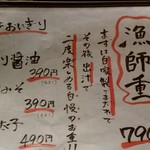 漁師重
まずは自家製ごまだれで
その後 出汁で
二度楽しめる自慢のお重!!
790
おにぎり
り醤油
390円
みそ
390円
太子
490円